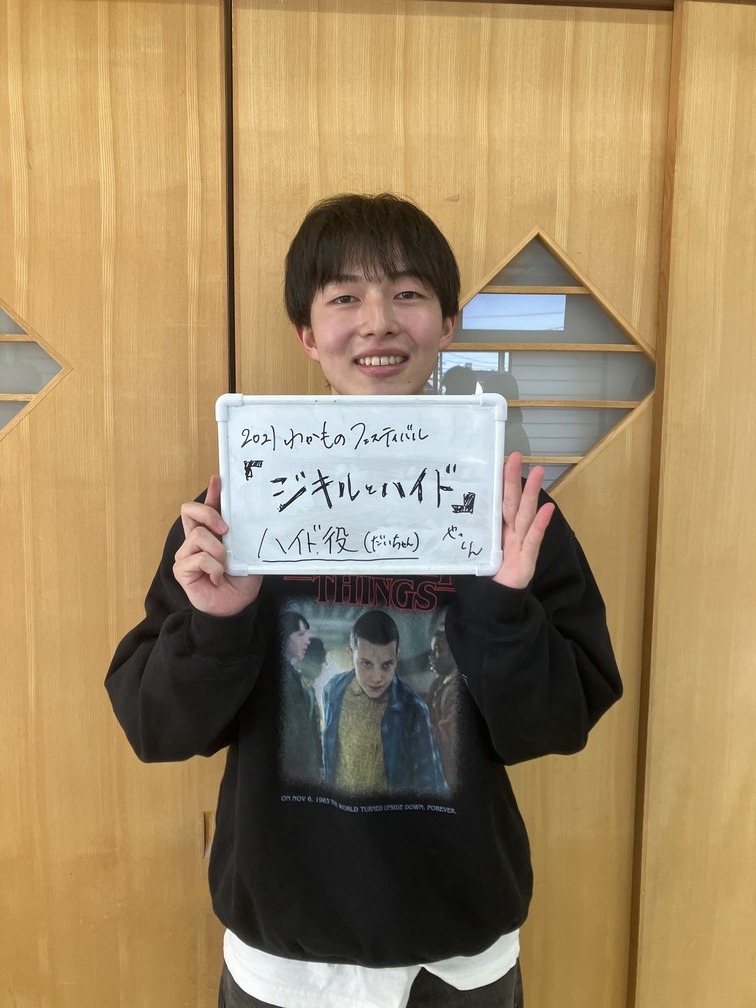 2021 わかものフェスティバル
『ジキルとハイド』
ハイド役 (だいちゃん)
THINGS
ON NOV 6, 1983 THE WORLD TURNED UPSIDE DOWN. FOREVER.